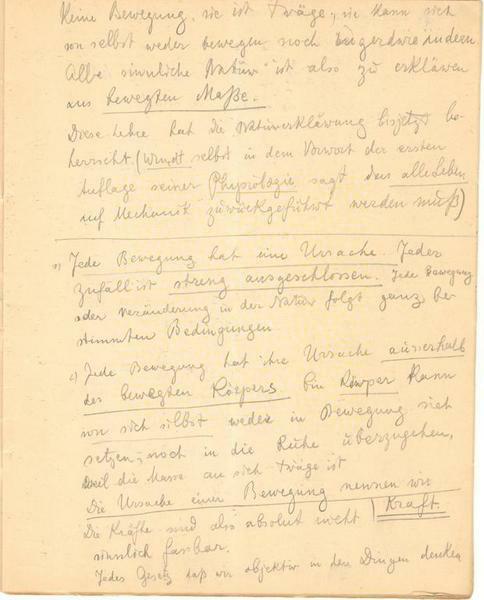 keine Bewegung, sie ist träge, sie kann sich
von selbst weder bewegen noch irgendwie ändern
Alle sinnliche Natur ist also zu erklären
aus bewegten Maße.
Diese Lehre hat die Naturerklärung bisjetzt be-
herrscht. (Wundt selbst in dem Vorwort der ersten
Auflage seiner Physiologie sagt das alle Leben
auf Mechanik zurückgeführt werden muß)
Jede Bewegung hat eine Ursache. Jeder
Zufall ist streng ausgeschlossen. Jede Bewegung
oder Veränderung in der Natur folgt ganz be-
stimmten Bedingungen
c) Jede Bewegung hat ihre Ursache ausserhalb
des bewegten Körpers Ein Körper kann
von sich selbst weder in Bewegung sich
setzen, noch in die Ruhe überzugehen,
weil die Masse an sich träge ist
Die Ursache einer Bewegung nennen wir
Kraft.
Die Kräfte sind also absolut nicht
sinnlich fassbar.
Jedes Gesetz daß wir objektiv in den Dingen denken